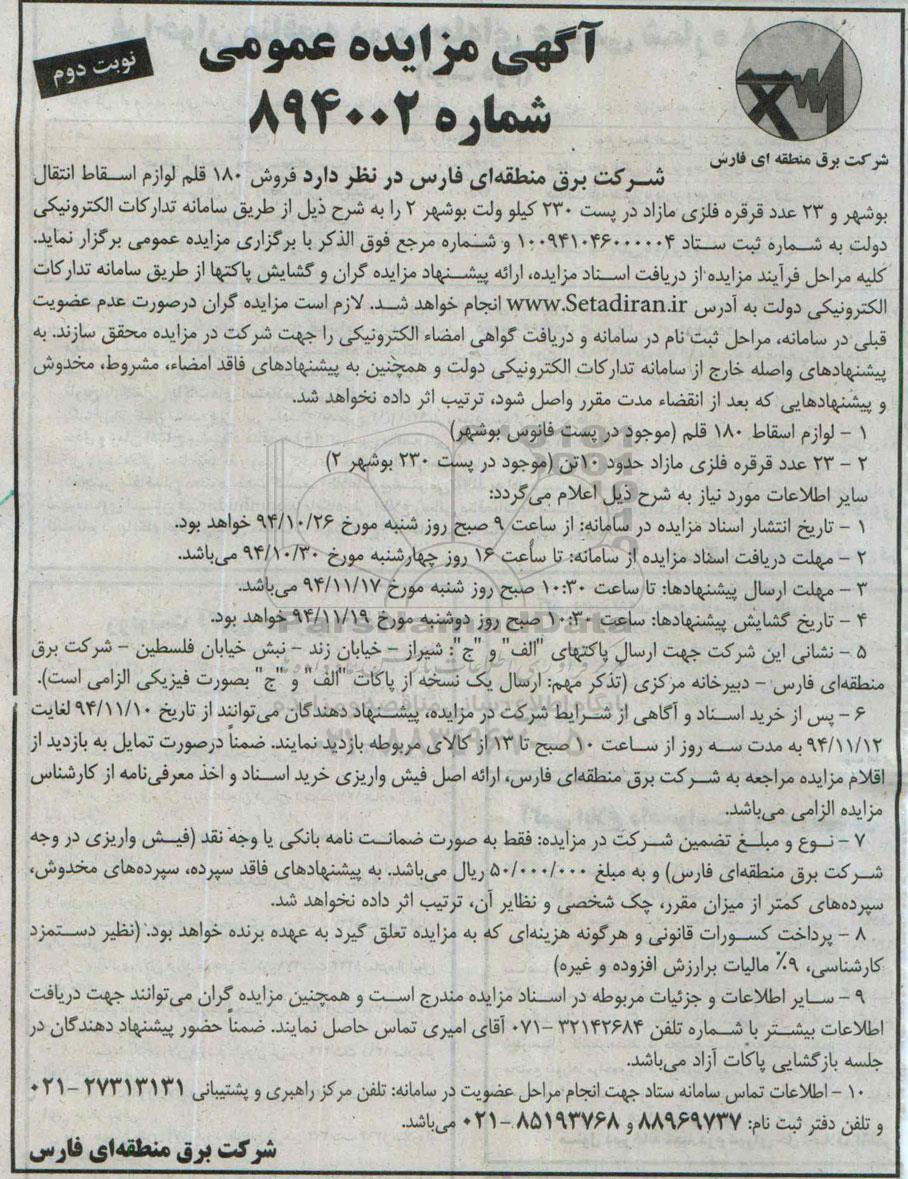 آگهی مزایده عمومی
شماره ۸۹۴۰۰۲
نوبت دوم
شرکت برق منطقه ای فارس
شرکت برق منطقه‌ای فارس در نظر دارد فروش ۱۸۰ قلم لوازم اسقاط انتقال
بوشهر و ۲۳ عدد قرقره فلزی مازاد در پست ۲۳۰ کیلو ولت بوشهر ۲ را به شرح ذیل از طریق سامانه تدارکات الکترونیکی
دولت به شماره ثبت ستاد ۱۰۰۹۴۱۰۴۶۰۰۰۰۰۴ و شماره مرجع فوق الذکر با برگزاری مزایده عمومی برگزار نماید.
کلیه مراحل فرآیند مزایده از دریافت اسناد مزایده، ارائه پیشنهاد مزایده گران و گشایش پاکتها از طریق سامانه تدارکات
الکترونیکی دولت به آدرس www.Setadiran.ir انجام خواهد شد. لازم است مزایده گران درصورت عدم عضویت
قبلی در سامانه، مراحل ثبت نام در سامانه و دریافت گواهی امضاء الکترونیکی را جهت شرکت در مزایده محقق سازند. به
پیشنهادهای واصله خارج از سامانه تدارکات الکترونیکی دولت و همچنین به پیشنهادهای فاقد امضاء، مشروط، مخدوش
و پیشنهادهایی که بعد از انقضاء مدت مقرر واصل شود، ترتیب اثر داده نخواهد شد.
۱ – لوازم اسقاط ۱۸۰ قلم (موجود در پست فانوس بوشهر)
۲ – ۲۳ عدد قرقره فلزی مازاد حدود ۱۰تن (موجود در پست ۲۳۰ بوشهر ۲)
سایر اطلاعات مورد نیاز به شرح ذیل اعلام می‌گردد:
۱ – تاریخ انتشار اسناد مزایده در سامانه: از ساعت ۹ صبح روز شنبه مورخ ۹۴/۱۰/۲۶ خواهد بود.
۲ – مهلت دریافت اسناد مزایده از سامانه: تا ساعت ۱۶ روز چهارشنبه مورخ ۹۴/۱۰/۳۰ می‌باشد.
۳ – مهلت ارسال پیشنهادها: تا ساعت ۱۰:۳۰ صبح روز شنبه مورخ ۹۴/۱۱/۱۷ می‌باشد.
۴ – تاریخ گشایش پیشنهادها: ساعت ۱۰:۳۰ صبح روز دوشنبه مورخ ۹۴/۱۱/۱۹ خواهد بود.
۵ – نشانی این شرکت جهت ارسال پاکتهای "الف" و "ج": شیراز – خیابان زند – نبش خیابان فلسطین – شرکت برق
منطقه‌ای فارس – دبیرخانه مرکزی (تذکر مهم: ارسال یک نسخه از پاکات "الف" و "ج" بصورت فیزیکی الزامی است).
۶ – پس از خرید اسناد و آگاهی از شرایط شرکت در مزایده، پیشنهاد دهندگان می‌توانند از تاریخ ۹۴/۱۱/۱۰ لغایت
۹۴/۱۱/۱۲ به مدت سه روز از ساعت ۱۰ صبح تا ۱۳ از کالای مربوطه بازدید نمایند. ضمناً درصورت تمایل به بازدید از
اقلام مزایده مراجعه به شرکت برق منطقه‌ای فارس، ارائه اصل فیش واریزی خرید اسناد و اخذ معرفی‌نامه از کارشناس
مزایده الزامی می‌باشد.
۷ – نوع و مبلغ تضمین شرکت در مزایده: فقط به صورت ضمانت نامه بانکی یا وجه نقد (فیش واریزی در وجه
شرکت برق منطقه‌ای فارس) و به مبلغ ۵۰/۰۰۰/۰۰۰ ریال می‌باشد. به پیشنهادهای فاقد سپرده، سپرده‌های مخدوش،
سپرده‌های کمتر از میزان مقرر، چک شخصی و نظایر آن، ترتیب اثر داده نخواهد شد.
۸ – پرداخت کسورات قانونی و هرگونه هزینه‌ای که به مزایده تعلق گیرد به عهده برنده خواهد بود. (نظیر دستمزد
کارشناسی، ۹٪ مالیات برارزش افزوده و غیره)
۹ – سایر اطلاعات و جزئیات مربوطه در اسناد مزایده مندرج است و همچنین مزایده گران می‌توانند جهت دریافت
اطلاعات بیشتر با شماره تلفن ۳۲۱۴۲۶۸۴ –۰۷۱ آقای امیری تماس حاصل نمایند. ضمناً حضور پیشنهاد دهندگان در
جلسه بازگشایی پاکات آزاد می‌باشد.
۱۰ – اطلاعات تماس سامانه ستاد جهت انجام مراحل عضویت در سامانه: تلفن مرکز راهبری و پشتیبانی ۲۷۳۱۳۱۳۱ –۰۲۱
و تلفن دفتر ثبت نام: ۸۸۹۶۹۷۳۷ و ۸۵۱۹۳۷۶۸ –۰۲۱ می‌باشد.
شرکت برق منطقه‌ای فارس
ParsNamadData